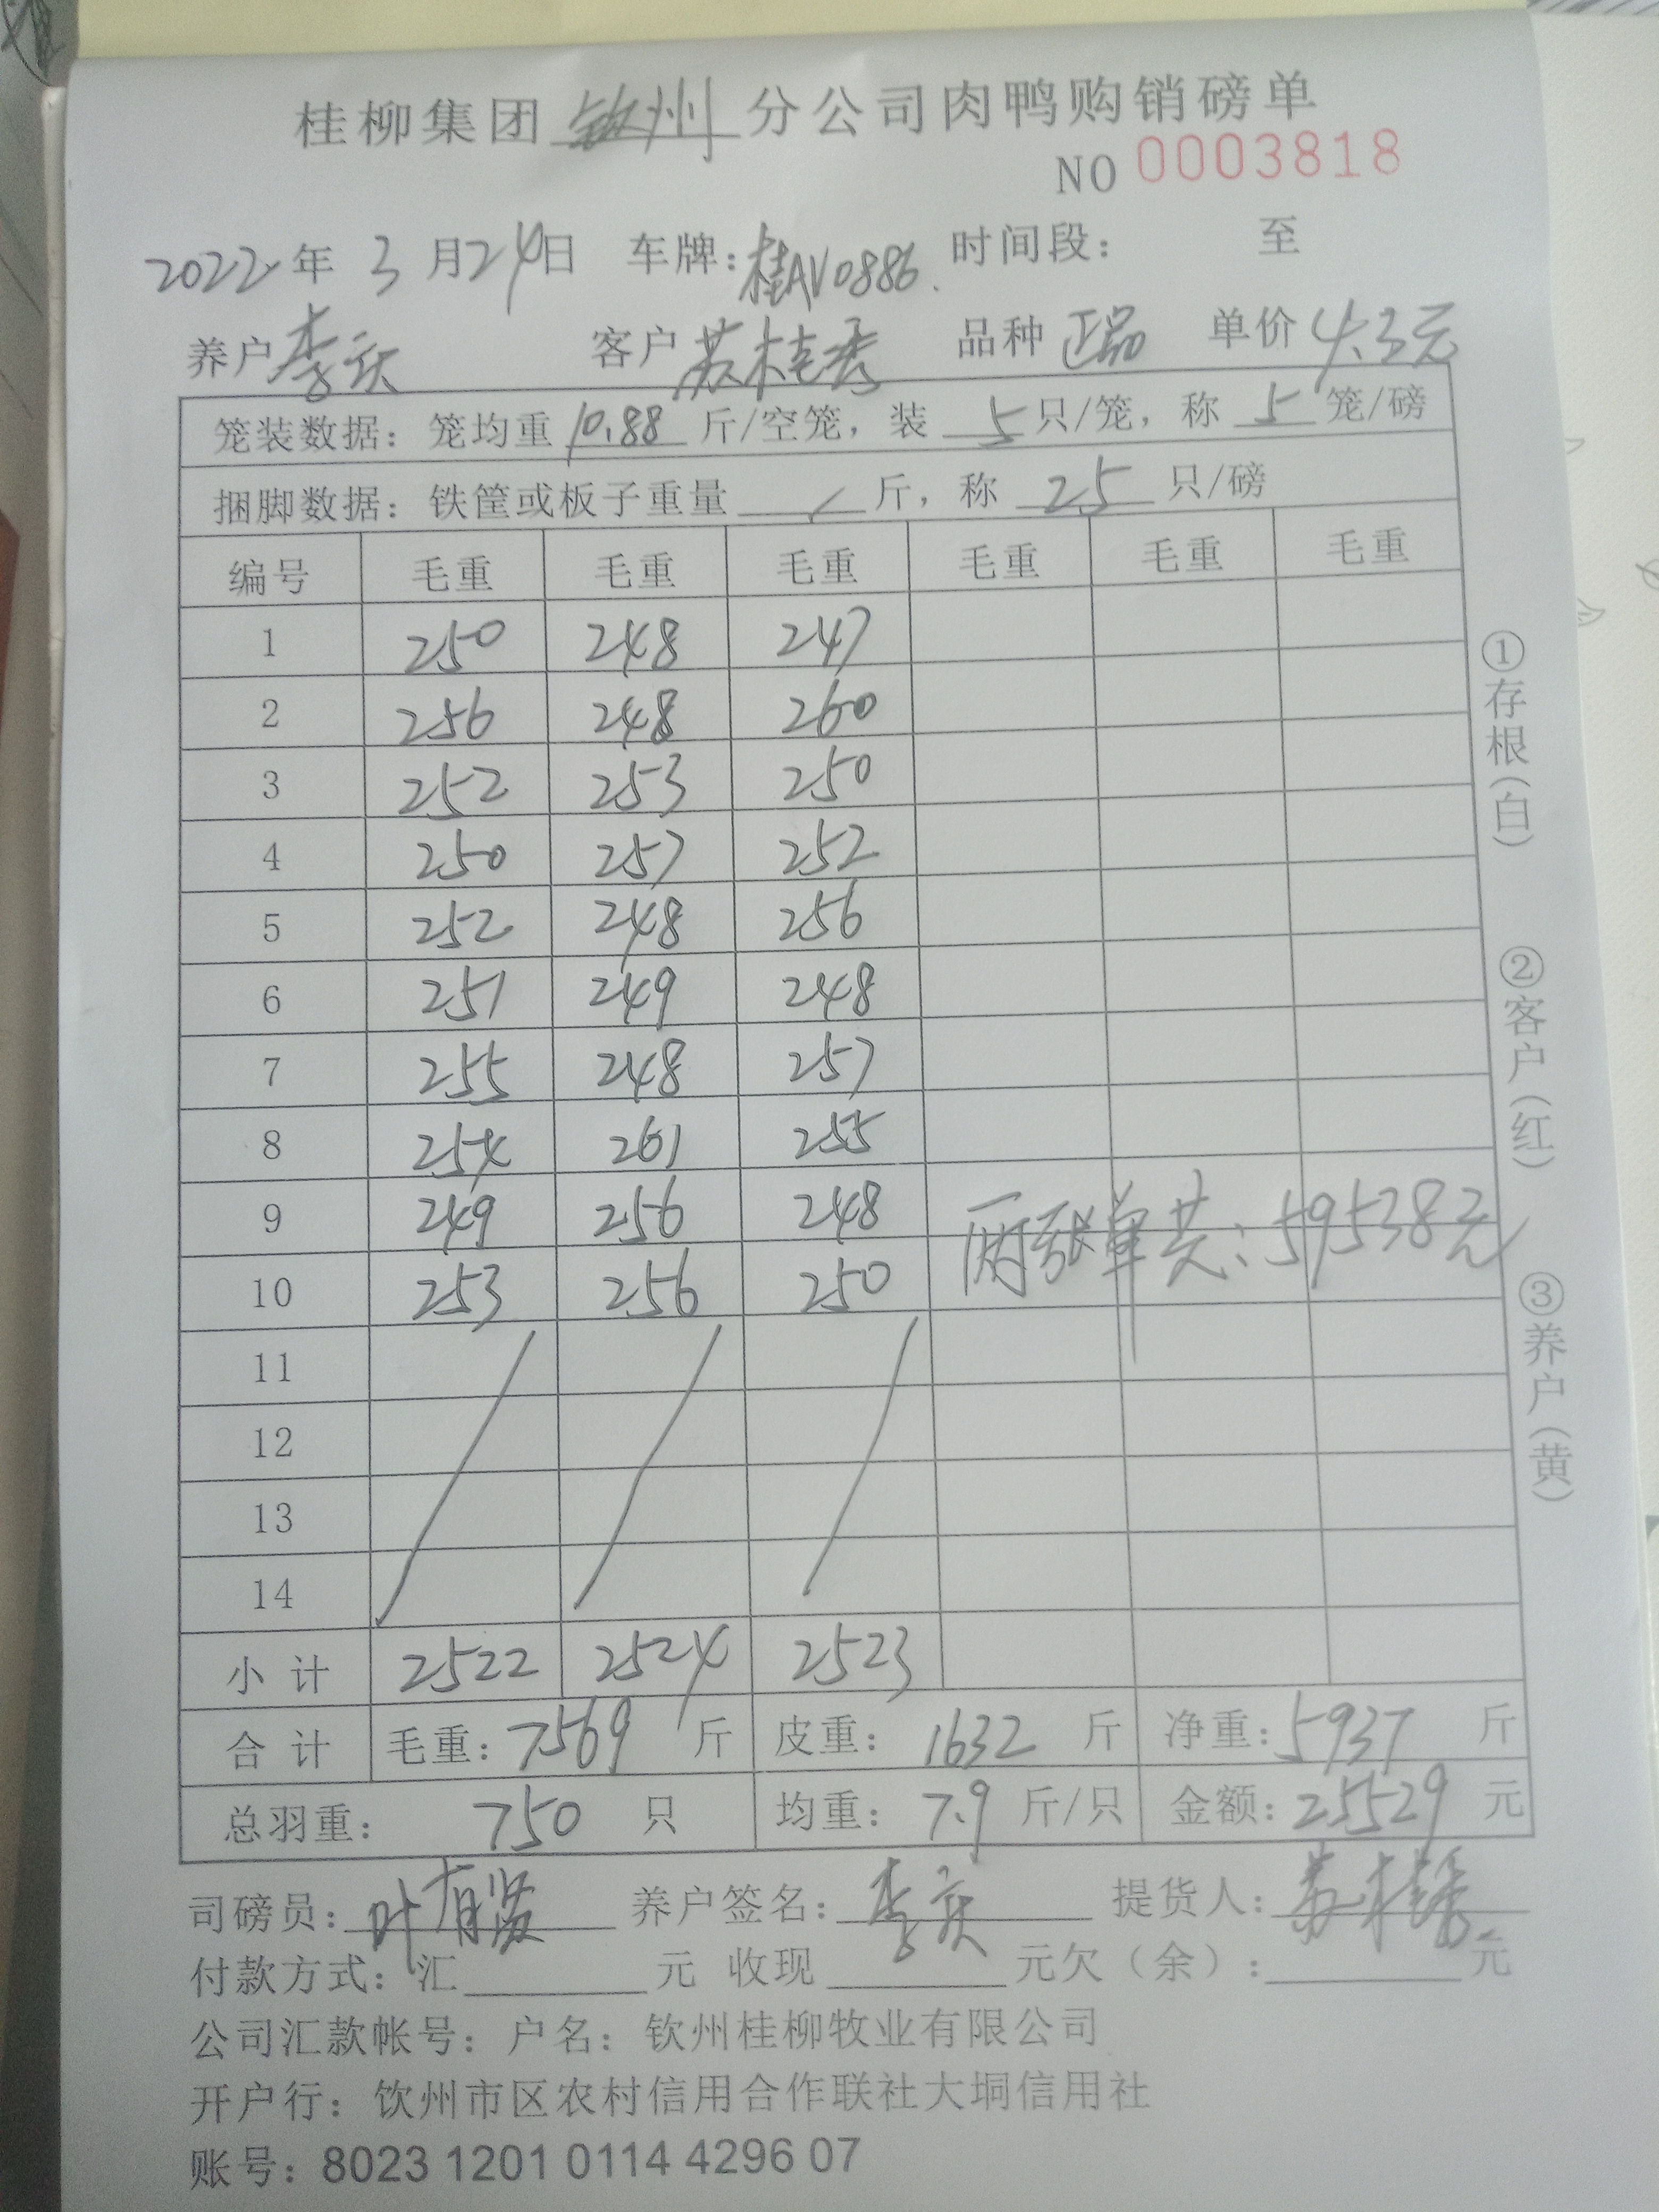 桂柳集团钦州分公司肉鸭购销磅单
NO 0003818
2022年3月24日 车牌:桂AV0886. 时间段: 至
养户李庆 客户苏桂秀 品种正品 单价4.3元
笼装数据: 笼均重10.88斤/空笼, 装5只/笼, 称5笼/磅
捆脚数据: 铁筐或板子重量/斤, 称25只/磅
编号 毛重 毛重 毛重 毛重 毛重 毛重
1 250 248 247
2 256 248 260
3 252 253 250
4 250 257 252
5 252 248 256
6 251 249 248
7 255 248 257
8 254 261 255
9 249 256 248
两张单共:59538元
10 253 256 250
11
12
13
14
小计 2522 2524 2523
合计 毛重:7569斤 皮重:1632斤 净重:5937斤
总羽重: 750只 均重:7.9斤/只 金额:25529元
司磅员:叶有 养户签名:李庆 提货人:苏桂秀
付款方式: 汇 元 收现 元欠(余): 元
公司汇款帐号: 户名: 钦州桂柳牧业有限公司
开户行: 钦州市区农村信用合作联社大垌信用社
账号: 8023 1201 0114 4296 07
①存根(白) ②客户(红) ③养户(黄)